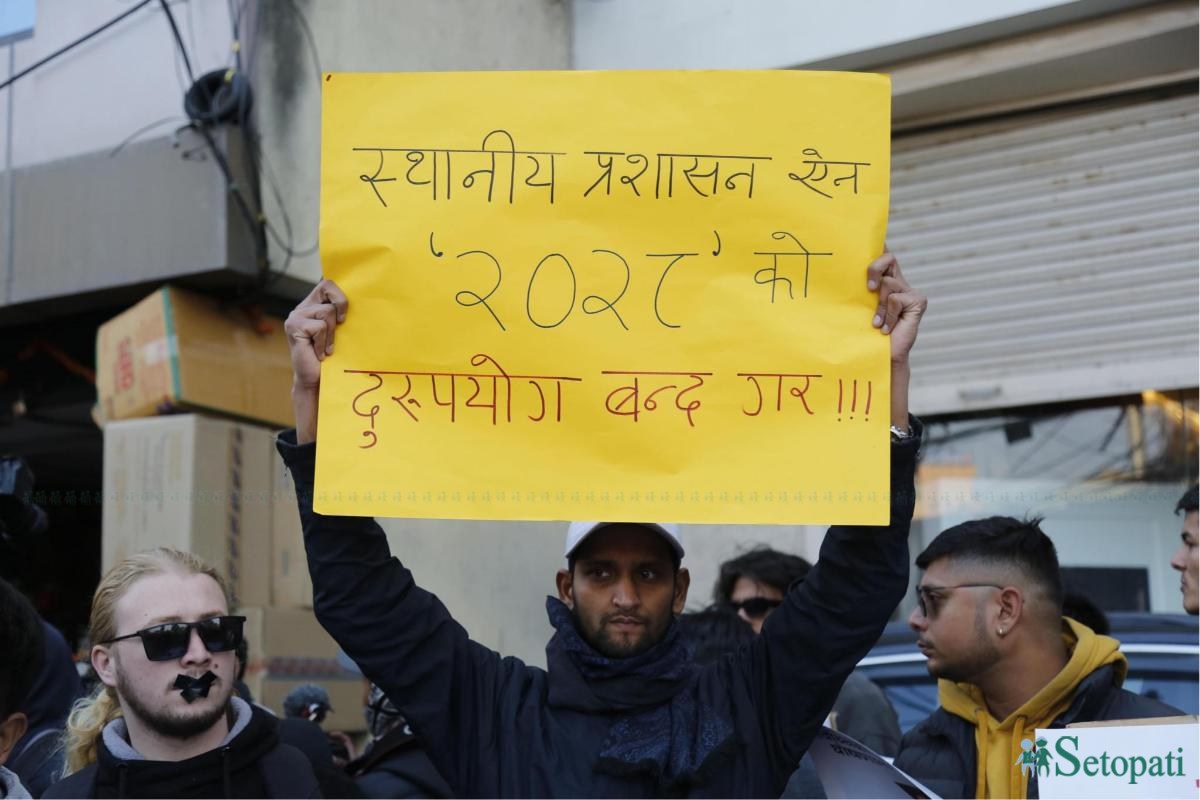 स्थानीय प्रशासन ऐन
'२०२८' को
दुरूपयोग बन्द गर !!!
Setopati